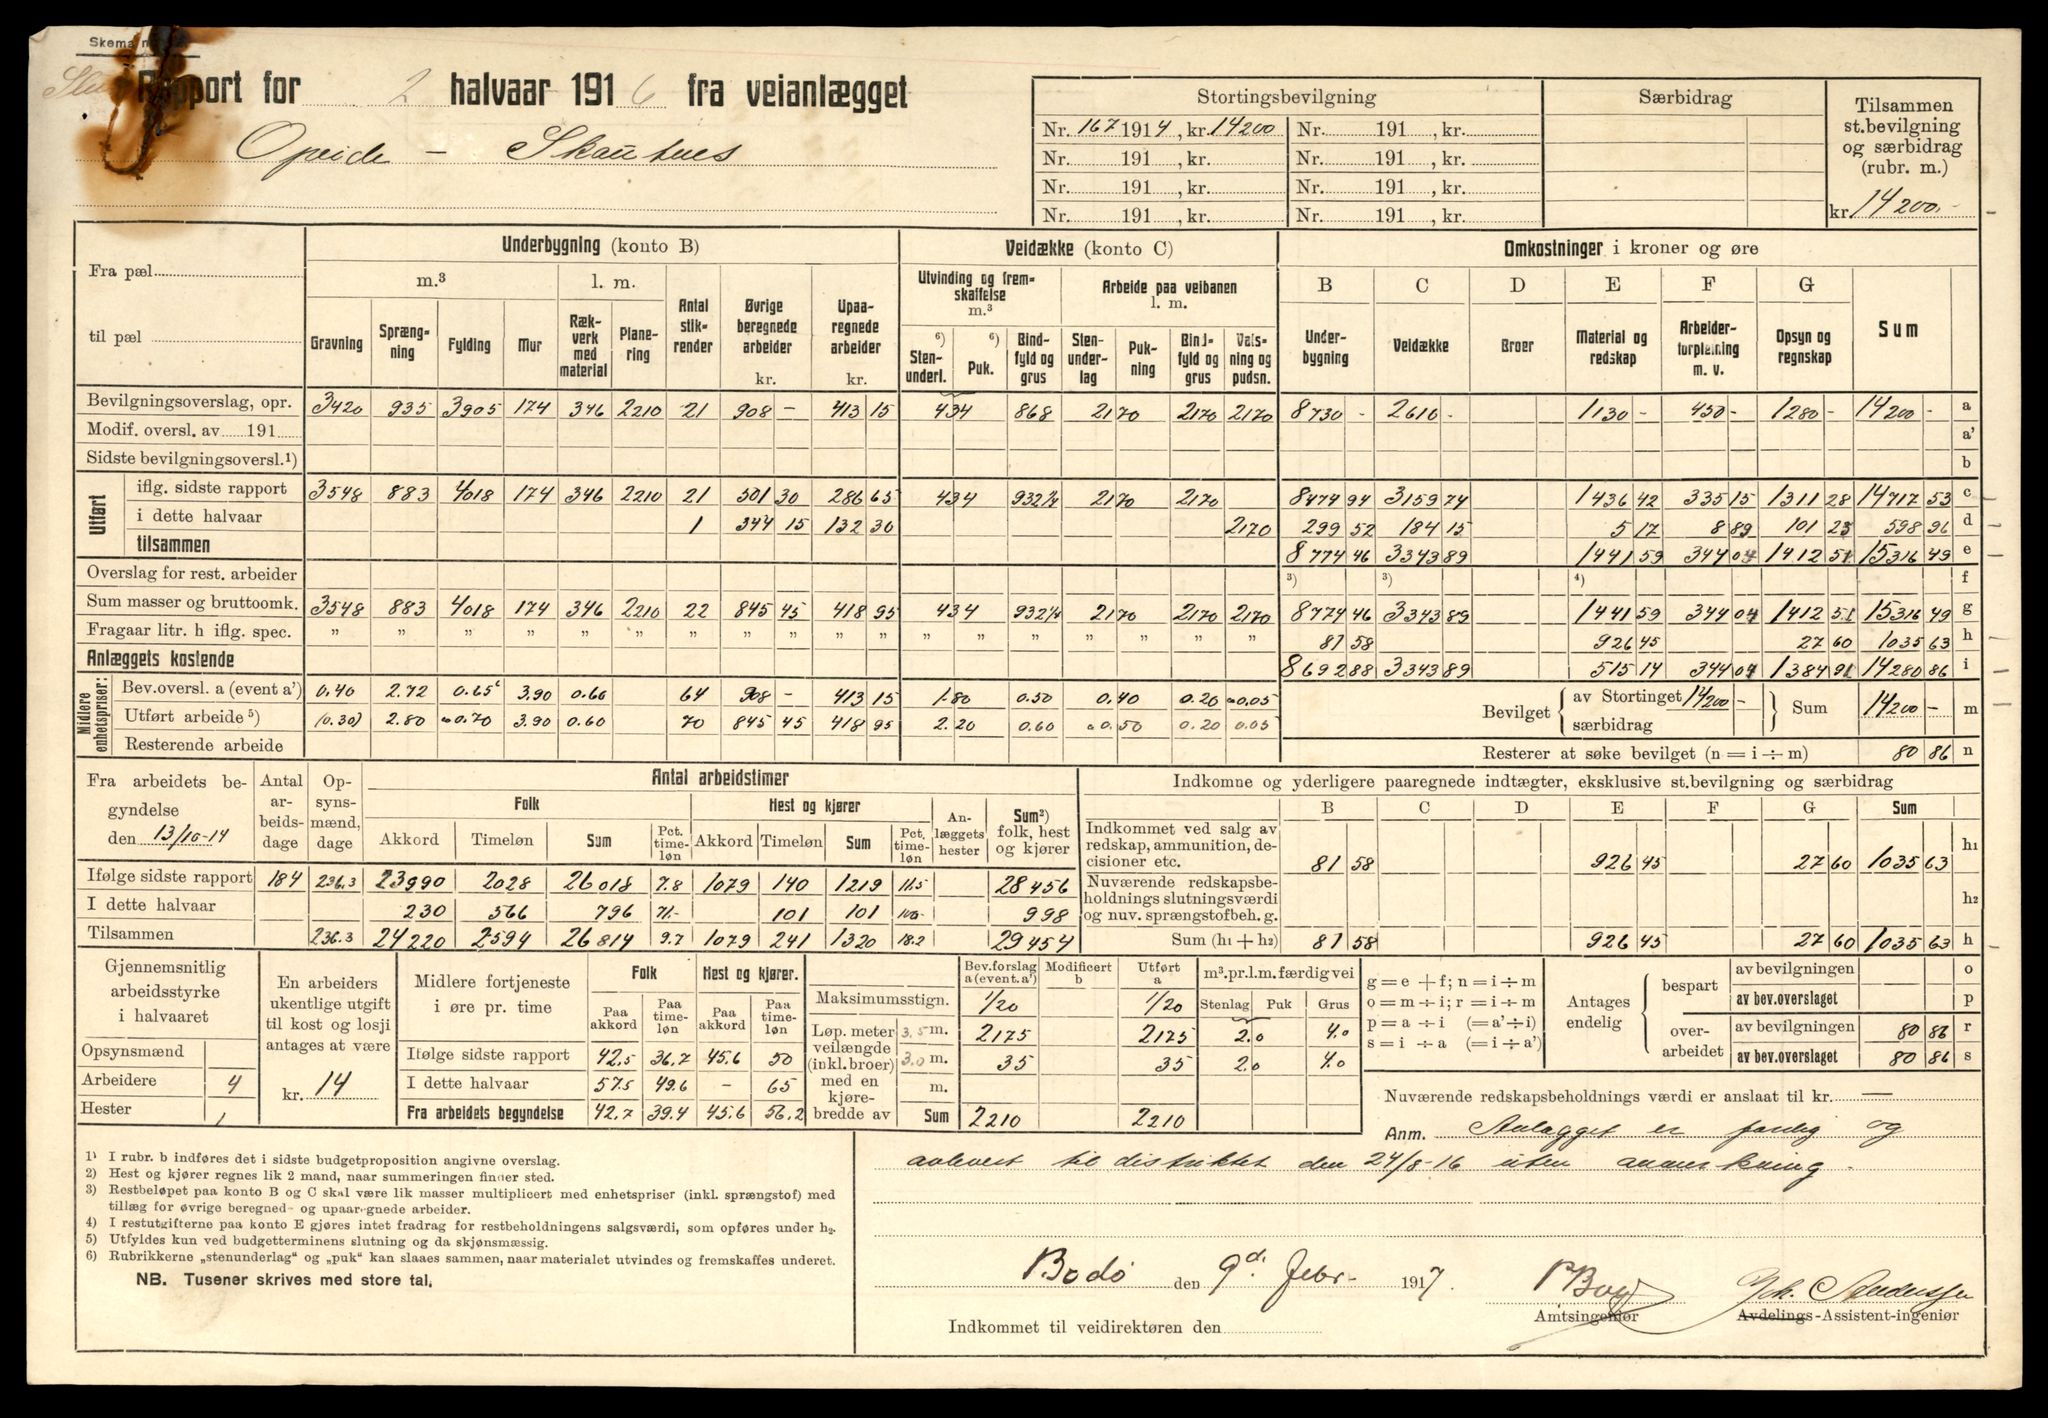 Skema n
Rapport for 2 halvaar 1916 fra veianlægget
Opeide — Skautnes
Stortingsbevilgning Særbidrag Tilsammen st.bevilgning og særbidrag (rubr. m.)
Nr. 167 1914, kr. 14200 Nr. 191 , kr.
Nr. 191 , kr. Nr. 191 , kr.
Nr. 191 , kr. Nr. 191 , kr.
Nr. 191 , kr. Nr. 191 , kr. kr. 14200.-
Fra pæl
til pæl
Underbygning (konto B) Veidække (konto C) Omkostninger i kroner og øre
m.³ l. m. Antal stikrender Øvrige beregnede arbeider kr. Upaaregnede arbeider kr.
Gravning Sprængning Fylding Mur Rækverk med material Planering
Utvinding og fremskaffelse m.³ Arbeide paa veibanen l. m.
⁶) Stenunderl. ⁶) Puk. Bindfyld og grus Stenunderlag Pukning Bindfyld og grus Valsning og pudsn.
B C D E F G Sum
Underbygning Veidække Broer Material og redskap Arbeiderforpleining m. v. Opsyn og regnskap
Bevilgningsoverslag, opr. 3420 935 3905 174 346 2210 21 908 - 413 15 434 868 2170 2170 2170 8730 - 2610 - 1130 - 450 - 1280 - 14200 - a
Modif. oversl. av 191 a'
Sidste bevilgningsoversl.¹) b
Utført
iflg. sidste rapport 3548 883 4018 174 346 2210 21 501 30 286 65 434 932½ 2170 2170 8474 94 3159 74 1436 42 335 15 1311 28 14717 53 c
i dette halvaar 1 344 15 132 30 2170 299 52 184 15 5 17 8 89 101 23 598 96 d
tilsammen 8774 46 3343 89 1441 59 344 04 1412 51 15316 49 e
Overslag for rest. arbeider ³) ³) ⁴) f
Sum masser og bruttoomk. 3548 883 4018 174 346 2210 22 845 45 418 95 434 932½ 2170 2170 2170 8774 46 3343 89 1441 59 344 04 1412 51 15316 49 g
Fragaar litr. h iflg. spec. „ „ „ „ „ „ „ „ „ „ „ „ „ „ „ „ 81 58 926 45 27 60 1035 63 h
Anlæggets kostende 8692 88 3343 89 515 14 344 04 1384 91 14280 86 i
Midlere enhetspriser:
Bev.oversl. a (event a') 0.40 2.72 0.65⁶ 3.90 0.60 64 908 - 413 15 1.80 0.50 0.40 0.20 0.05
Utført arbeide⁵) (0.30) 2.80 0.70 3.90 0.60 70 845 45 418 95 2.20 0.60 0.50 0.20 0.05
Resterende arbeide
Bevilget av Stortinget 14200 - særbidrag Sum 14200 - m
Resterer at søke bevilget (n = i ÷ m) 80 86 n
Fra arbeidets begyndelse den 13/10-14
Antal arbeidsdage Opsynsmænd, dage
Antal arbeidstimer
Folk Hest og kjører Anlæggets hester Sum²) folk, hest og kjører
Akkord Timeløn Sum Pct. timeløn Akkord Timeløn Sum Pct. timeløn
Ifølge sidste rapport 184 236.3 23990 2028 26018 7.8 1079 140 1219 11.5 28456
I dette halvaar 230 566 796 71.- 101 101 100- 998
Tilsammen 236.3 24220 2594 26814 9.7 1079 241 1320 18.2 29454
Indkomne og yderligere paaregnede indtægter, eksklusive st.bevilgning og særbidrag
B C D E F G Sum
Indkommet ved salg av redskap, ammunition, decisioner etc. 81 58 926 45 27 60 1035 63 h₁
Nuværende redskapsbeholdnings slutningsværdi og nuv. sprængstofbeh. g. h₂
Sum (h₁ + h₂) 81 58 926 45 27 60 1035 63 h
Gjennemsnitlig arbeidsstyrke i halvaaret
Opsynsmænd
Arbeidere 4
Hester 1
En arbeiders ukentlige utgift til kost og losji antages at være kr. 14
Midlere fortjeneste i øre pr. time
Folk Hest og kjører.
Paa akkord Paa timeløn Paa akkord Paa timeløn
Ifølge sidste rapport 42.5 36.7 45.6 50
I dette halvaar 57.5 49.6 - 65
Fra arbeidets begyndelse 42.7 39.4 45.6 56.2
Bev.forslag a (event. a') Modificert b Utført a m³.pr.l.m.færdig vei
Maksimumsstign. 1/20 1/20 Stenlag Puk Grus
Løp. meter veilængde (inkl. broer) med en kjørebredde av
3.5 m. 2175 2175 2.0 4.0
3.0 m. 35 35 2.0 4.0
m.
Sum 2210 2210
g = e + f; n = i ÷ m
o = m ÷ i; r = i ÷ m
p = a ÷ i (= a' ÷ i)
s = i ÷ a (= i ÷ a')
Antages endelig
bespart av bevilgningen o
av bev.overslaget p
overarbeidet av bevilgningen 80 86 r
av bev.overslaget 80 86 s
Nuværende redskapsbeholdnings værdi er anslaat til kr. —
Anm. Anlægget er færdig og
avlevert til distriktet den 24/8-16 uten anmerkning.
1) I rubr. b indføres det i sidste budgetproposition angivne overslag.
2) Hest og kjører regnes lik 2 mand, naar summeringen finder sted.
3) Restbeløpet paa konto B og C skal være lik masser multiplicert med enhetspriser (inkl. sprængstof) med
tillæg for øvrige beregned- og upaaregnede arbeider.
4) I restutgifterne paa konto E gjøres intet fradrag for restbeholdningens salgsværdi, som opføres under h₂.
5) Utfyldes kun ved budgetterminens slutning og da skjønsmæssig.
6) Rubrikkerne „stenunderlag" og „puk" kan slaaes sammen, naar materialet utvindes og fremskaffes underet.
NB. Tusener skrives med store tal.
Bodø den 9d. febr. 1917.
Amtsingeniør
Joh. Anderssen
Avdelings-Assistent-ingeniør
Indkommet til veidirektøren den